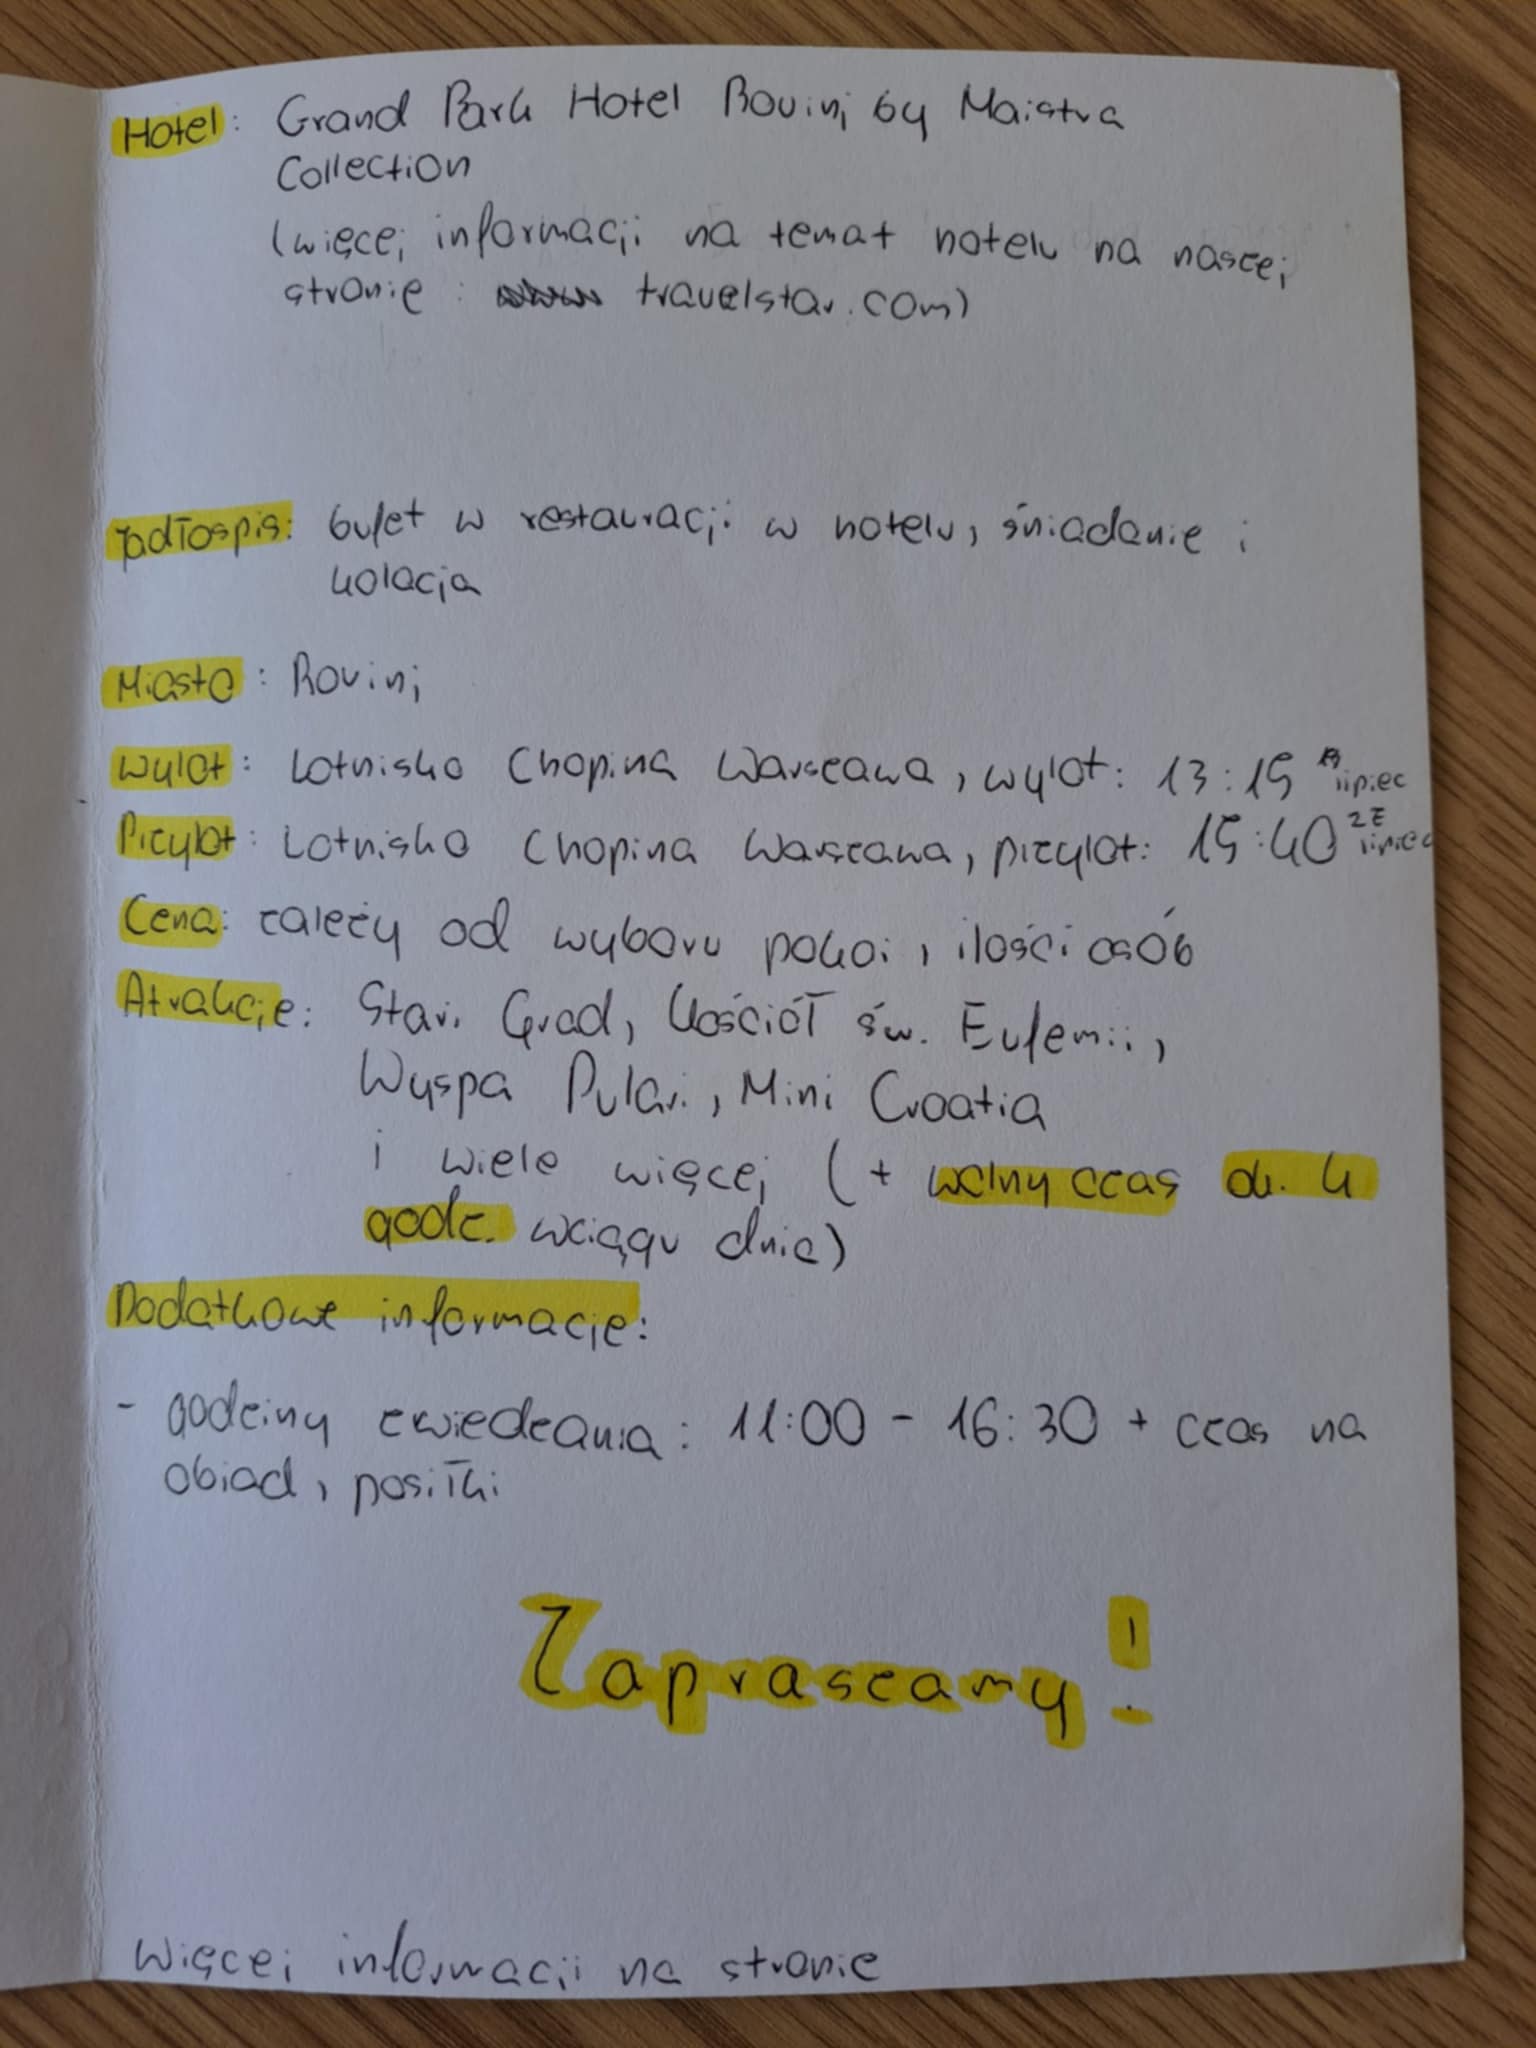 Hotel: Grand Park Hotel Rovinj by Maistra
Collection
(więcej informacji na temat hotelu na naszej
stronie: travelstar.com)
Jadłospis: bufet w restauracji w hotelu, śniadanie i
kolacja
Miasto: Rovinj
Wylot: Lotnisko Chopina Warszawa, wylot: 13:15 lipiec
Przylot: Lotnisko Chopina Warszawa, przylot: 15:40 lipiec
Cena: zależy od wyboru pokoi, ilości osób
Atrakcje: Stari Grad, Kościół św. Eufemii,
Wyspa Pulari, Mini Croatia
i wiele więcej (+ wolny czas ok. 4
godz. wciągu dnia)
Dodatkowe informacje:
- godziny zwiedzania: 11:00 - 16:30 + czas na
obiad, posiłki
Zapraszamy!
Więcej informacji na stronie